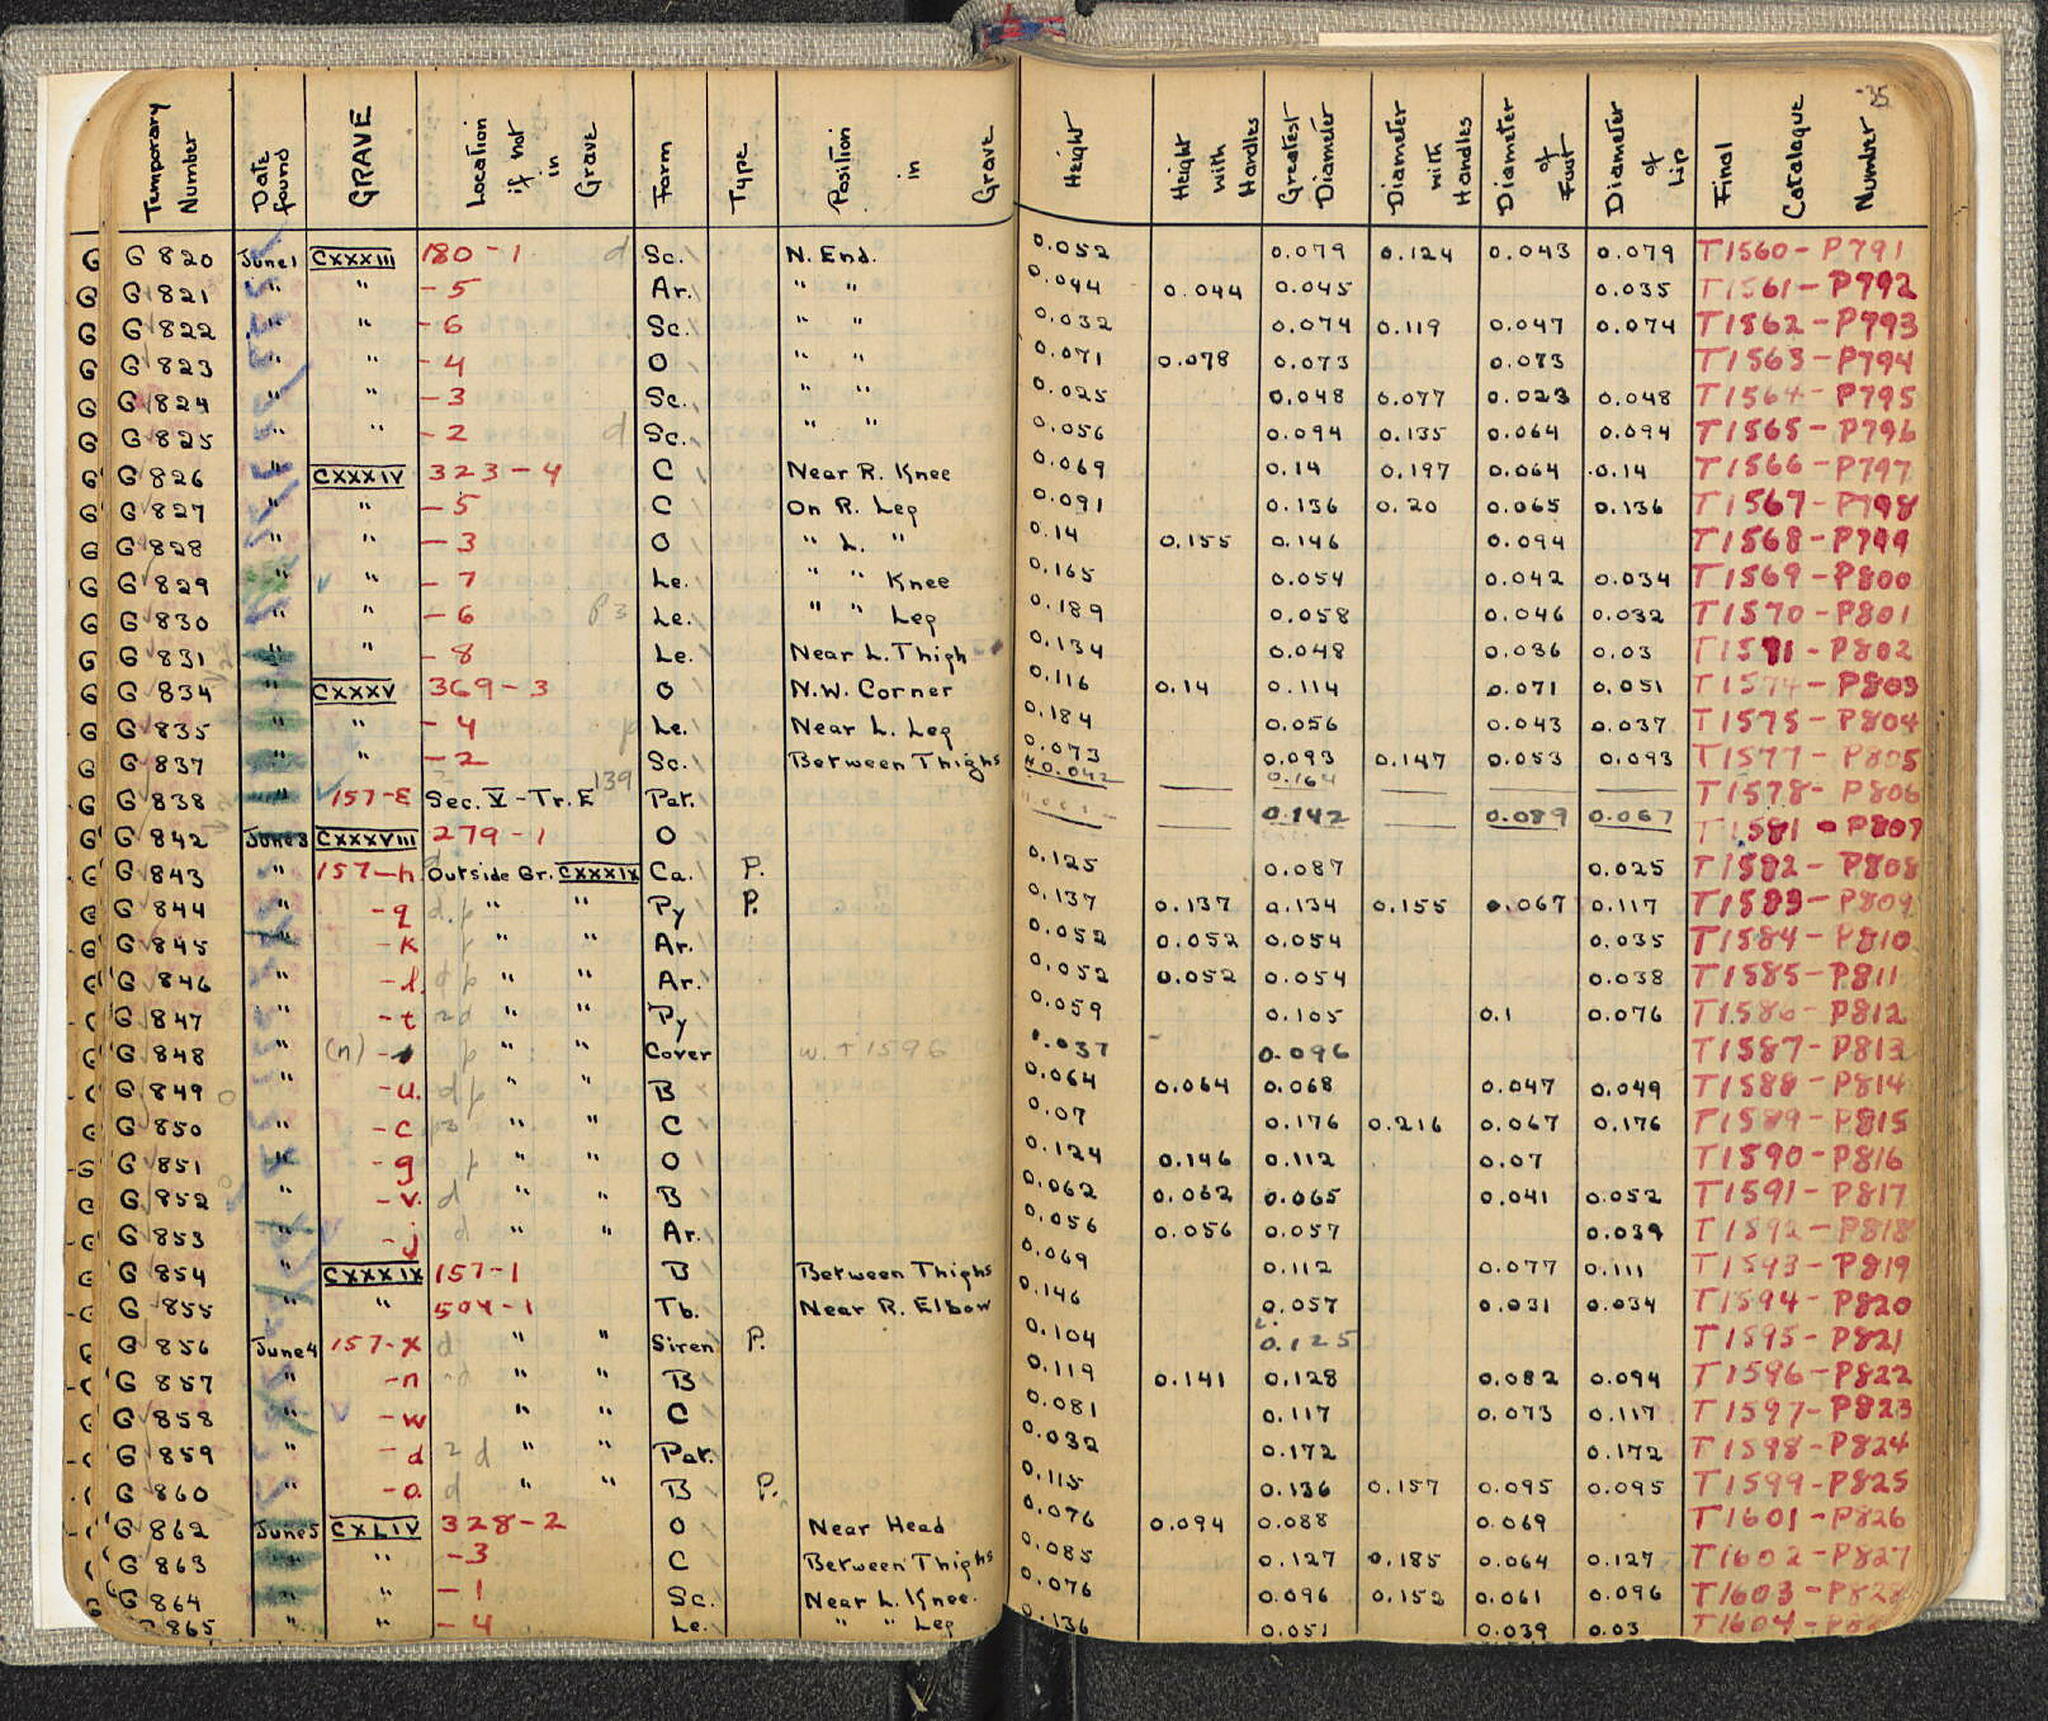 Temporary Number Date found GRAVE Location if not in Grave Form Type Position in Grave Height Height with Handles Greatest Diameter Diameter with Handles Diameter of Foot Diameter of Lip Final Catalogue Number 35
G 820 June 1 CXXXIII 180-1 d Sc. N. End. 0.052 0.079 0.124 0.043 0.079 T1560-P791
G 821 " " -5 Ar. " " 0.044 0.044 0.045 0.035 T1561-P792
G 822 " " -6 Sc. " " 0.032 0.074 0.119 0.047 0.074 T1562-P793
G 823 " " -4 O " " 0.071 0.078 0.073 0.073 T1563-P794
G 824 " " -3 Sc. " " 0.025 0.048 0.077 0.023 0.048 T1564-P795
G 825 " " -2 d Sc. " " 0.056 0.094 0.135 0.064 0.094 T1565-P796
G 826 " CXXXIV 323-4 C Near R. Knee 0.069 0.14 0.197 0.064 0.14 T1566-P797
G 827 " " -5 C On R. Leg 0.091 0.136 0.20 0.065 0.136 T1567-P798
G 828 " " -3 O " L. " 0.14 0.155 0.146 0.094 T1568-P799
G 829 " " -7 Le. " " Knee 0.165 0.054 0.042 0.034 T1569-P800
G 830 " " -6 p3 Le. " " Leg 0.189 0.058 0.046 0.032 T1570-P801
G 831 " " -8 Le. Near L. Thigh 0.134 0.048 0.036 0.03 T1571-P802
G 834 " CXXXV 369-3 O N.W. Corner 0.116 0.14 0.114 0.071 0.051 T1574-P803
G 835 " " -4 p Le. Near L. Leg 0.184 0.056 0.043 0.037 T1575-P804
G 837 " " -2 Sc. Between Thighs 0.073 0.093 0.147 0.053 0.093 T1577-P805
G 838 " 157-E Sec. V-Tr. E 139 Pat. 0.042 0.164 T1578-P806
G 842 June 3 CXXXVIII 279-1 O 0.142 0.089 0.067 T1581-P807
G 843 " 157-h Outside Gr. CXXXIX Ca. P. 0.125 0.087 0.025 T1582-P808
G 844 " -q d.p " " Py P. 0.137 0.137 0.134 0.155 0.067 0.117 T1583-P809
G 845 " -k p " " Ar. 0.052 0.052 0.054 0.035 T1584-P810
G 846 " -l. d p " " Ar. 0.052 0.052 0.054 0.038 T1585-P811
G 847 " -t 2d " " Py 0.059 0.105 0.1 0.076 T1586-P812
G 848 " (n) - p " " Cover w. T1596 0.037 0.096 T1587-P813
G 849 " -u. d p " " B 0.064 0.064 0.068 0.047 0.049 T1588-P814
G 850 " -c " " C 0.07 0.176 0.216 0.067 0.176 T1589-P815
G 851 " -g p " " O 0.124 0.146 0.112 0.07 T1590-P816
G 852 " -v. d " " B 0.062 0.062 0.065 0.041 0.052 T1591-P817
G 853 " -j d " " Ar. 0.056 0.056 0.057 0.039 T1592-P818
G 854 " CXXXIX 157-1 B Between Thighs 0.069 0.112 0.077 0.111 T1593-P819
G 855 " " 504-1 Tb. Near R. Elbow 0.146 0.057 0.031 0.034 T1594-P820
G 856 June 4 157-x d " " Siren P. 0.104 L. 0.125 T1595-P821
G 857 " -n d " " B 0.119 0.141 0.128 0.082 0.094 T1596-P822
G 858 " -w " " C 0.081 0.117 0.073 0.117 T1597-P823
G 859 " -d 2 d " " Pat. 0.032 0.172 0.172 T1598-P824
G 860 " -o. d " " B P. 0.115 0.136 0.157 0.095 0.095 T1599-P825
G 862 June 5 CXLIV 328-2 O Near Head 0.076 0.094 0.088 0.069 T1601-P826
G 863 " " -3 C Between Thighs 0.085 0.127 0.185 0.064 0.127 T1602-P827
G 864 " " -1 Sc. Near L. Knee. 0.076 0.096 0.152 0.061 0.096 T1603-P828
865 " " -4 Le. " " Leg 0.136 0.051 0.039 0.03 T1604